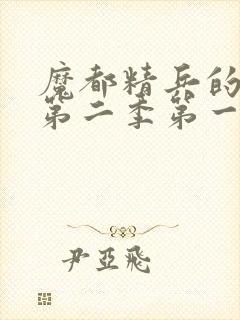 魔都精兵的
第二季第一
尹亞飛